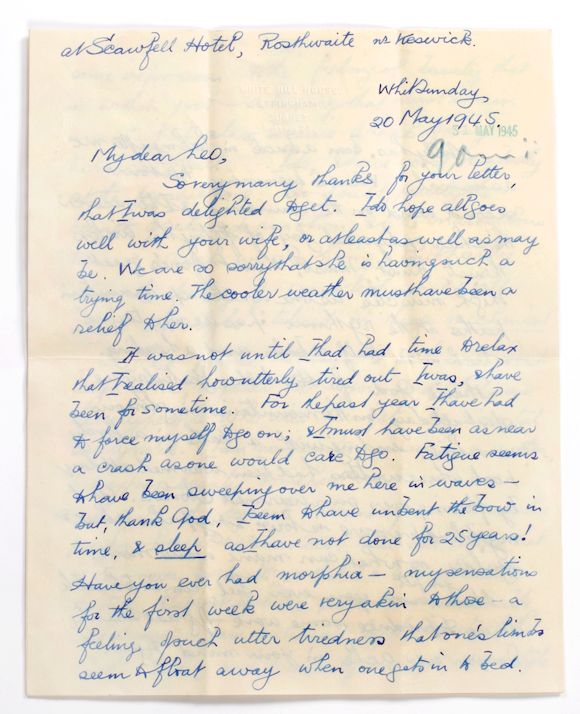 at Scawfell Hotel, Rosthwaite nr Keswick.
WhitSunday,
20 May 1945.
MAY 1945
My dear Leo,
So very many thanks for your letter,
that I was delighted to get. I do hope all goes
well with your wife, or at least as well as may
be. We are so sorry that she is having such a
trying time. The cooler weather must have been a
relief to her.
It was not until I had had time to relax
that I realised how utterly tired out I was, & have
been for some time. For the past year I have had
to force myself to go on; & I must have been as near
a crash as one would care to go. Fatigue seems
to have been sweeping over me here in waves –
but, thank God, I seem to have unbent the bow in
time, & sleep as I have not done for 25 years!
Have you ever had morphia – my sensations
for the first week were very akin to those – a
feeling of such utter tiredness that one's limbs
seem to float away when one gets in to bed.